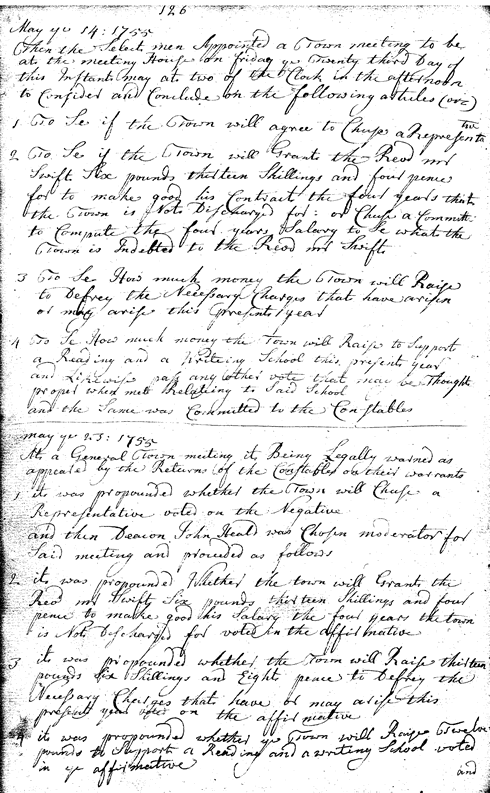 126
May ye 14: 1755
Then the Select men Appointed a Town meeting to be
at the meeting House on friday ye Twenty third Day of
this Instant may at two of the Clock in the afternoon
to Consider and Conclude on the following articles (viz)
1 To Se if the Town will agree to Chuse a Representa tive
2 To Se if the Town will Grant the Revd mr
Swift Six pounds thirteen Shillings and four pence
for to make good his Contract the four years that
the Town is Not Discharged for: or Chuse a Committe
to Compute the four years Salary to Se what the
Town is Indebted to the Revd mr Swift
3 To Se How much money the Town will Raise
to Defrey the Necessary Charges that have arisen
or may arise this present year
4 To Se How much money the Town will Raise to Support
a Reading and a Writeing School this present year
and Likewise pass any other vote that may be Thought
proper when met Relateing to Said School
and the Same was Committed to the Constables
may ye 23: 1755
At a General Town meeting it Being Legally warned as
appeared by the Returns of the Constables on their warrants
1 it was propounded whether the Town will Chuse a
Representative voted on the Negative
and then Deacon John Heald was Chosen moderator for
Said meeting and proceded as follows
2 it was propounded Whether the town will Grant the
Revd mr Swift Six pounds thirteen Shillings and four
pence to make good his Salary the four years the town
is Not Discharged for voted in the affirmative
3 it was propounded whether the Town will Raise thirteen
pounds Six Shillings and Eight pence to Defrey the
Necessary Charges that have or may arise this
present year voted on the affirmative
4 it was propounded whether ye Town will Raise Twelve
pounds to Support a Reading and a writing School voted
in ye affirmative
and